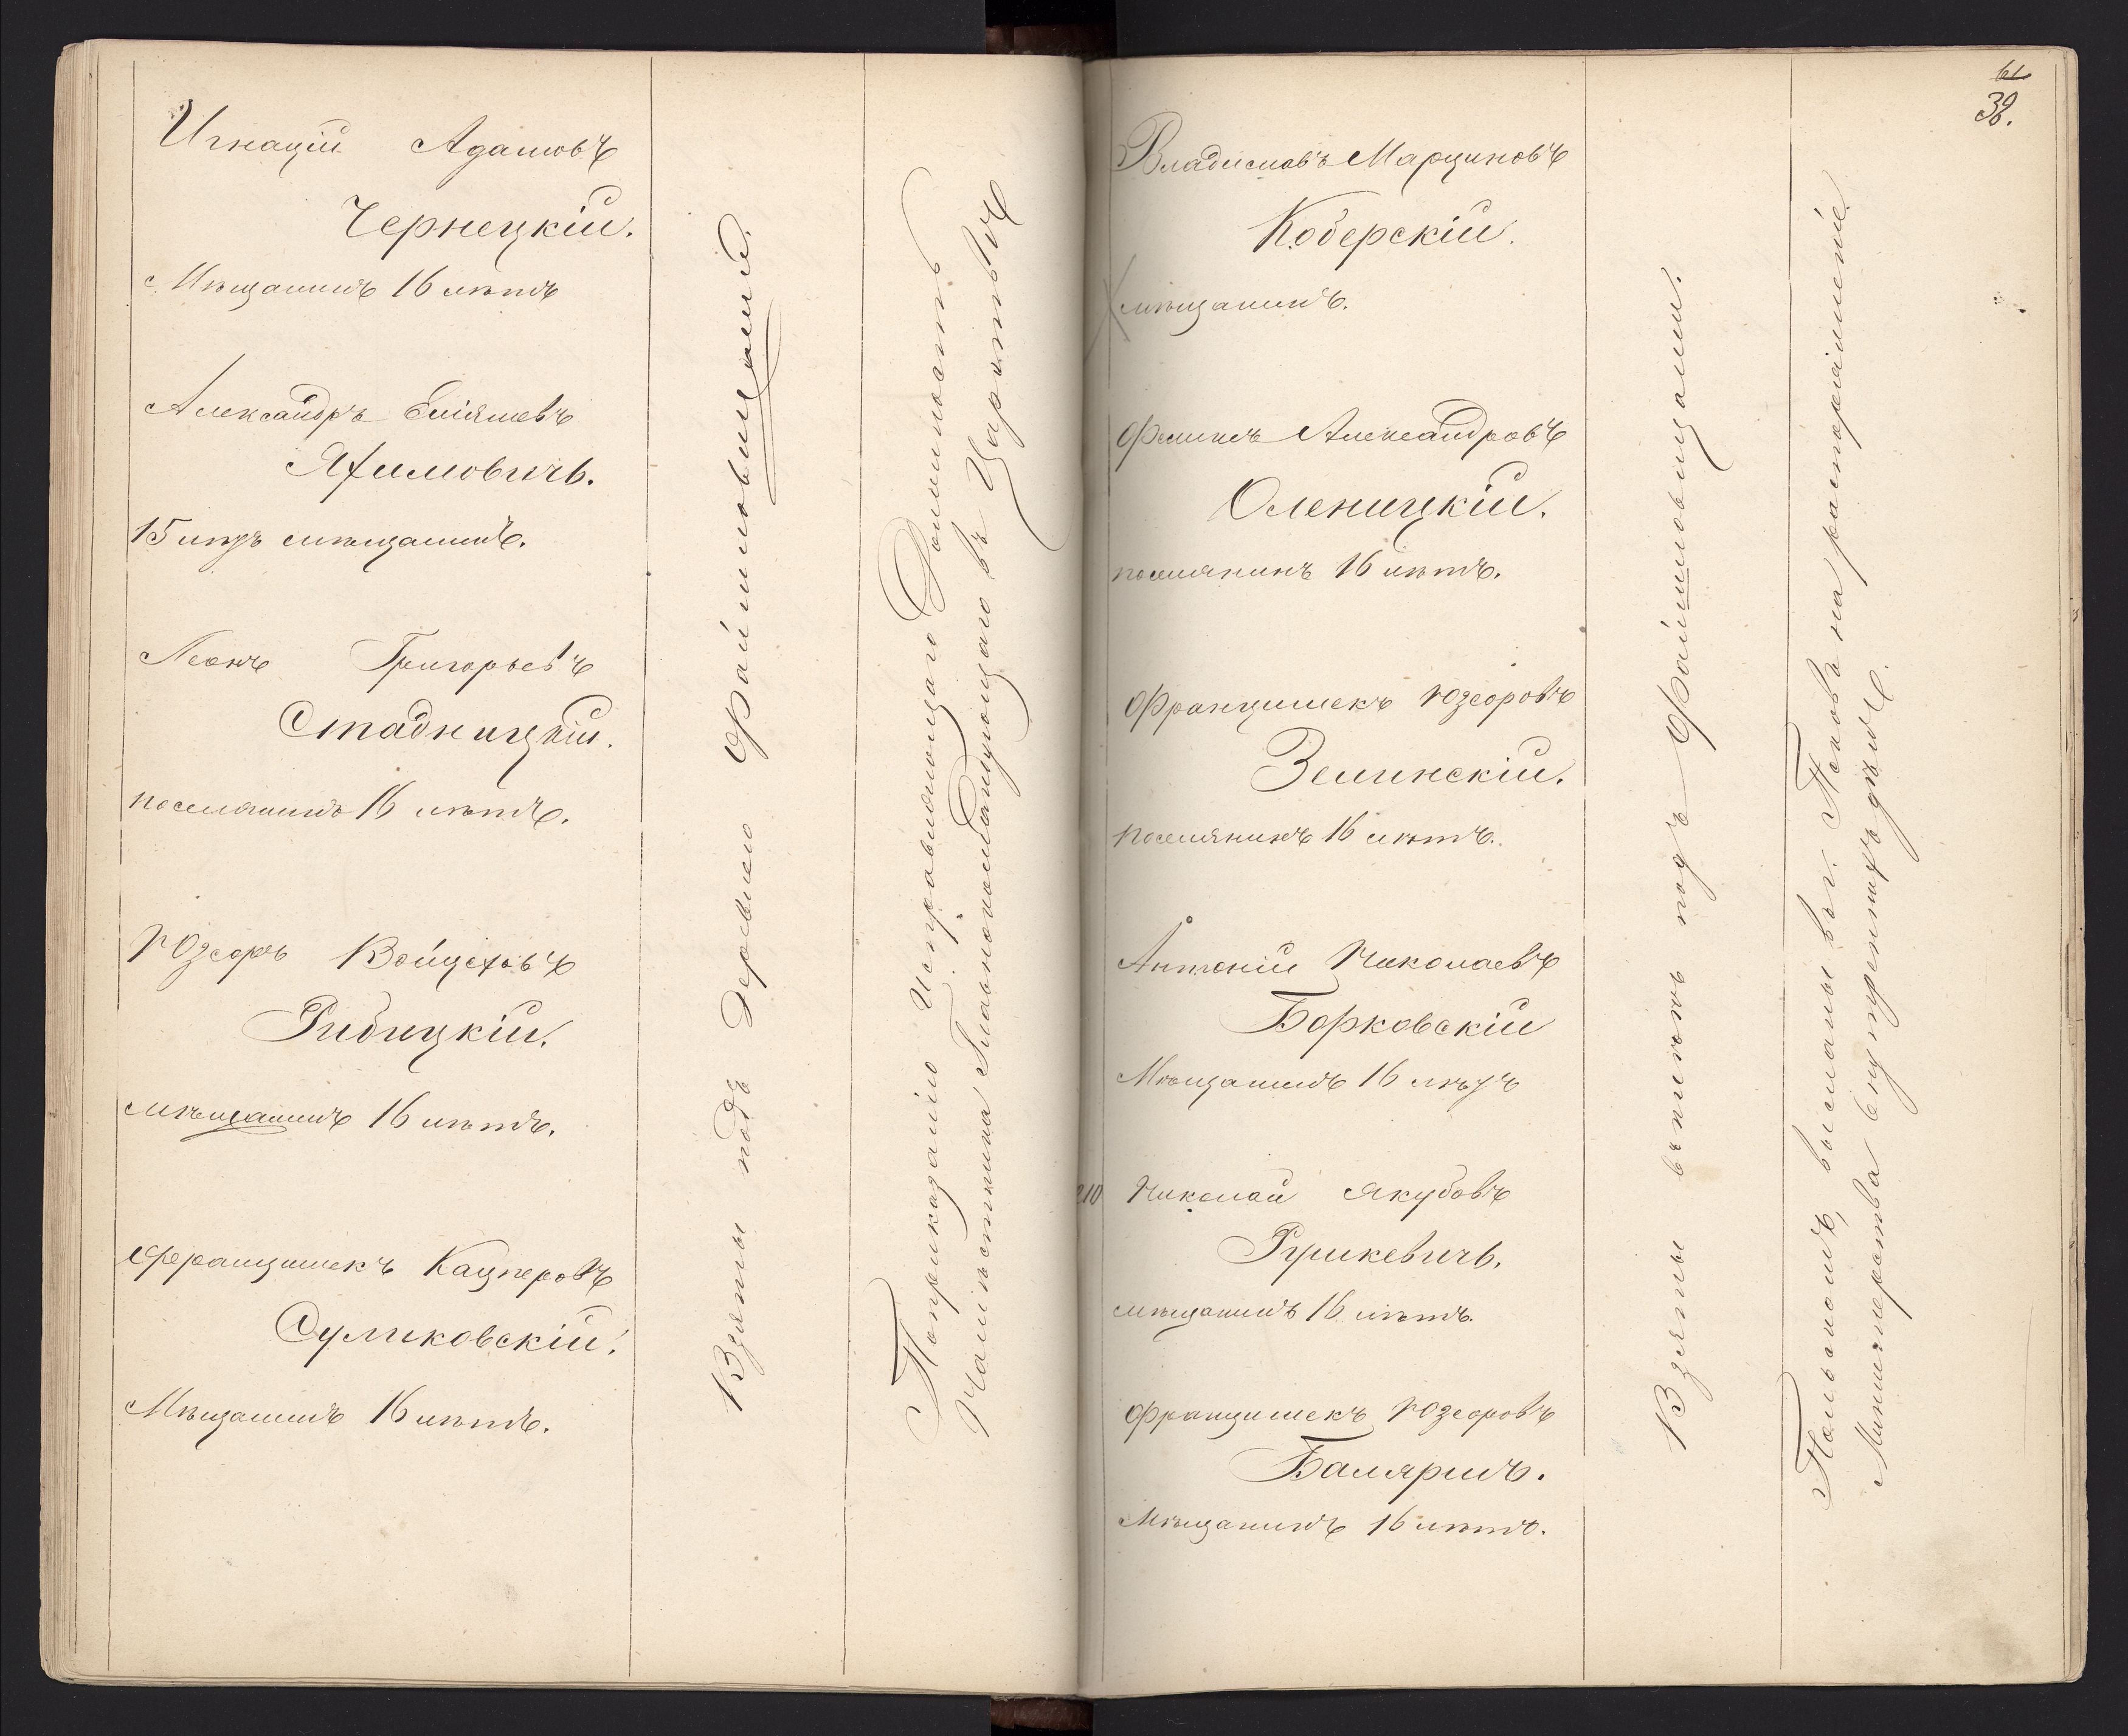 Игнацiй Адамовъ
Чернецкiй.
Мѣщанинъ 16 лѣтъ
Александръ Емiяшевъ
Яхимовичъ.
15 лѣтъ мѣщанинъ.
Леонъ Григорьевъ
Стадницкiй.
поселянинъ 16 лѣтъ.
Юзефъ Войцеховъ
Рибицкiй.
мѣщанинъ 16 лѣтъ.
Францишекъ Кацперовъ
Суликовскiй.
Мѣщанинъ 16 лѣтъ.
Взяты подъ Деревнею
По приказанiю Исправляющаго Должность
Намѣстника Главнокомандующаго въ Царствѣ
61
38.
Владиславъ Марциновъ
Коберскiй.
мѣщанинъ.
Феликсъ Александровъ
Оленицкiй.
поселянинъ 16 лѣтъ.
Францишекъ Юзефовъ
Зелинскiй.
Поселянинъ 16 лѣтъ.
Антонiй Николаевъ
Борковскiй
Мѣщанинъ 16 лѣтъ
210 Николай Якубовъ
Рушкевичъ.
мѣщанинъ 16 лѣтъ.
Францишекъ Юзефовъ
Баляринъ.
Мѣщанинъ 16 лѣтъ.
Взяты въ плѣнъ подъ
Польскомъ, высланы въ г. Псковъ на распоряженiе
Министерства внутреннихъ дѣлъ.